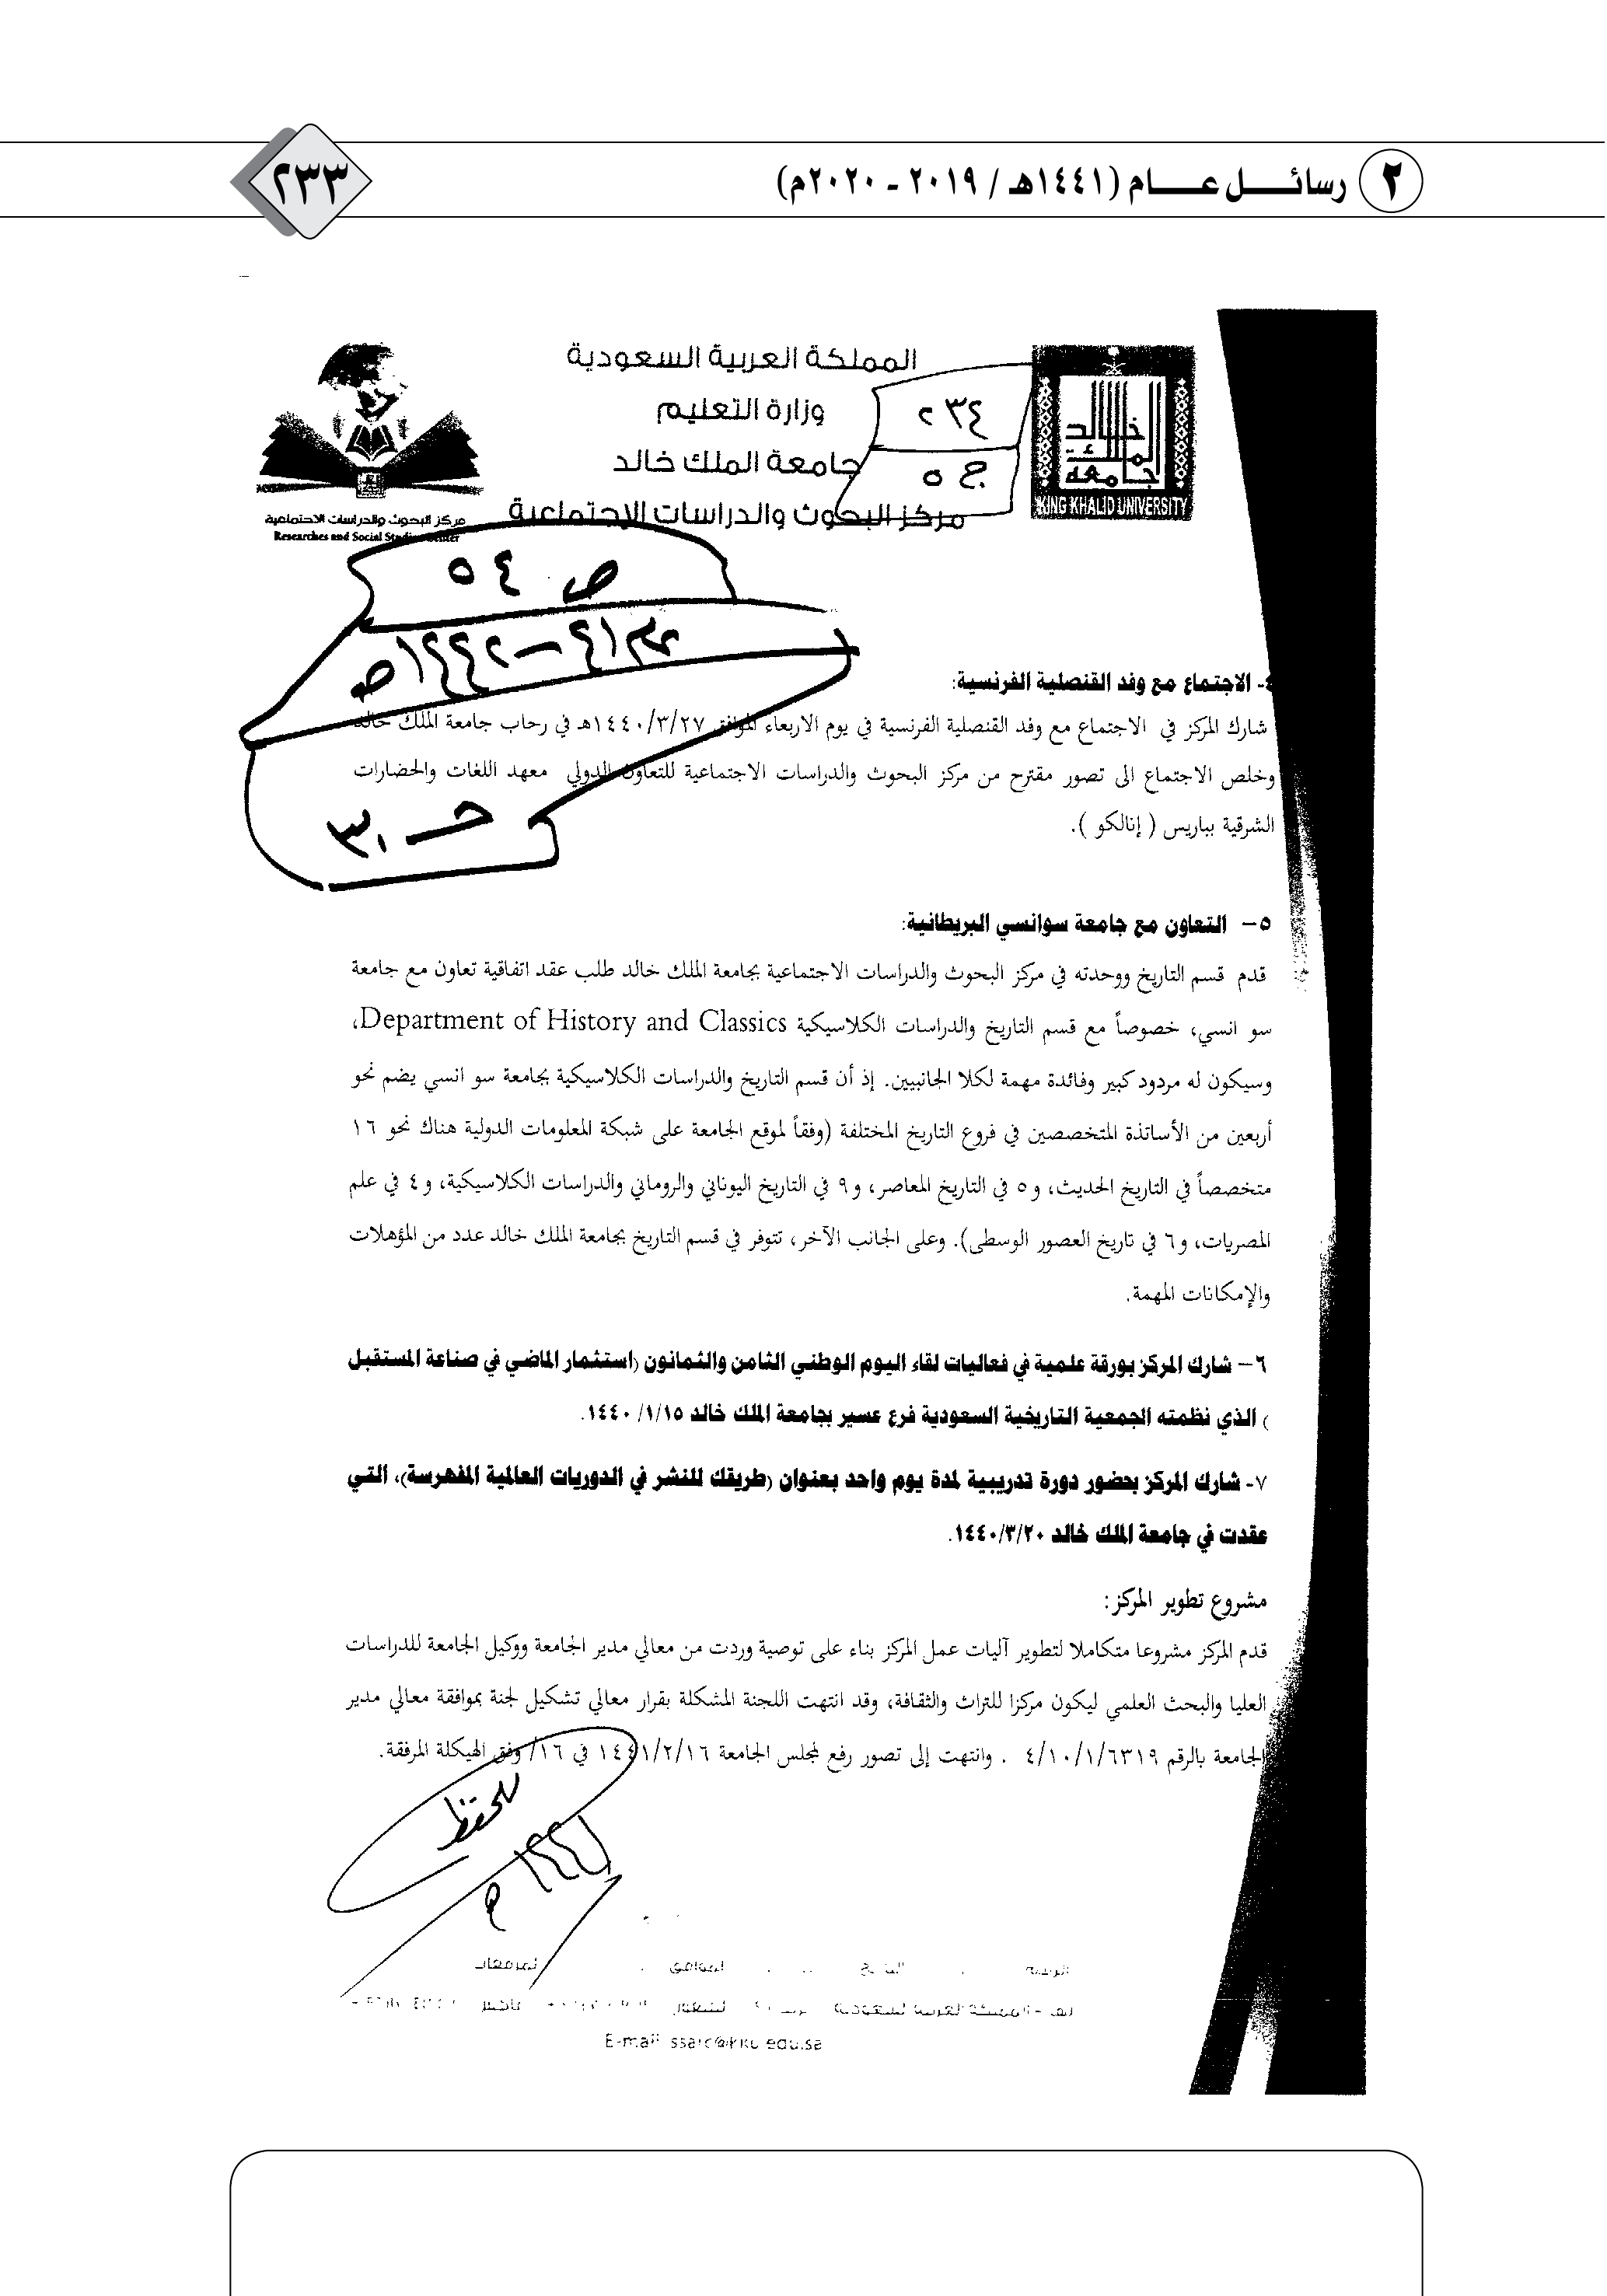 ٢ رسائل عام (١٤٤١هـ / ٢٠١٩ - ٢٠٢٠م)
٢٣٣
المملكة العربية السعودية
وزارة التعليم
جامعة الملك خالد
مركز البحوث والدراسات الاجتماعية
جامعة الملك خالد
KING KHALID UNIVERSITY
٢٣٤
ج ٥
مركز البحوث والدراسات الاجتماعية
Researches and Social Studies Center
ص ٥٤
٤- الاجتماع مع وفد القنصلية الفرنسية:
شارك المركز في الاجتماع مع وفد القنصلية الفرنسية في يوم الاربعاء الموافق ١٤٤٠/٣/٢٧هـ في رحاب جامعة الملك خالد
وخلص الاجتماع الى تصور مقترح من مركز البحوث والدراسات الاجتماعية للتعاون الدولي معهد اللغات والحضارات
الشرقية بباريس ( إنالكو ).
٥- التعاون مع جامعة سوانسي البريطانية:
قدم قسم التاريخ ووحدته في مركز البحوث والدراسات الاجتماعية بجامعة الملك خالد طلب عقد اتفاقية تعاون مع جامعة
سو انسي، خصوصاً مع قسم التاريخ والدراسات الكلاسيكية Department of History and Classics،
وسيكون له مردود كبير وفائدة مهمة لكلا الجانبيين. إذ أن قسم التاريخ والدراسات الكلاسيكية بجامعة سو انسي يضم نحو
أربعين من الأساتذة المتخصصين في فروع التاريخ المختلفة (وفقاً لموقع الجامعة على شبكة المعلومات الدولية هناك نحو ١٦
متخصصاً في التاريخ الحديث، و٥ في التاريخ المعاصر، و٩ في التاريخ اليوناني والروماني والدراسات الكلاسيكية، و٤ في علم
المصريات، و٦ في تاريخ العصور الوسطى). وعلى الجانب الآخر، تتوفر في قسم التاريخ بجامعة الملك خالد عدد من المؤهلات
والإمكانات المهمة.
٦- شارك المركز بورقة علمية في فعاليات لقاء اليوم الوطني الثامن والثمانون (استثمار الماضي في صناعة المستقبل
) الذي نظمته الجمعية التاريخية السعودية فرع عسير بجامعة الملك خالد ١/١٥/ ١٤٤٠.
٧- شارك المركز بحضور دورة تدريبية لمدة يوم واحد بعنوان (طريقك للنشر في الدوريات العالمية المفهرسة)، التي
عقدت في جامعة الملك خالد ١٤٤٠/٣/٢٠.
مشروع تطوير المركز:
قدم المركز مشروعا متكاملا لتطوير آليات عمل المركز بناء على توصية وردت من معالي مدير الجامعة ووكيل الجامعة للدراسات
العليا والبحث العلمي ليكون مركزا للتراث والثقافة، وقد انتهت اللجنة المشكلة بقرار معالي تشكيل لجنة بموافقة معالي مدير
الجامعة بالرقم ٤/١٠/١/٦٣١٩ . وانتهت إلى تصور رفع لمجلس الجامعة ١٤٤١/٢/١٦ في ١٦/ وفق الهيكلة المرفقة.
للحفظ
E-mail ssarc@kku.edu.sa